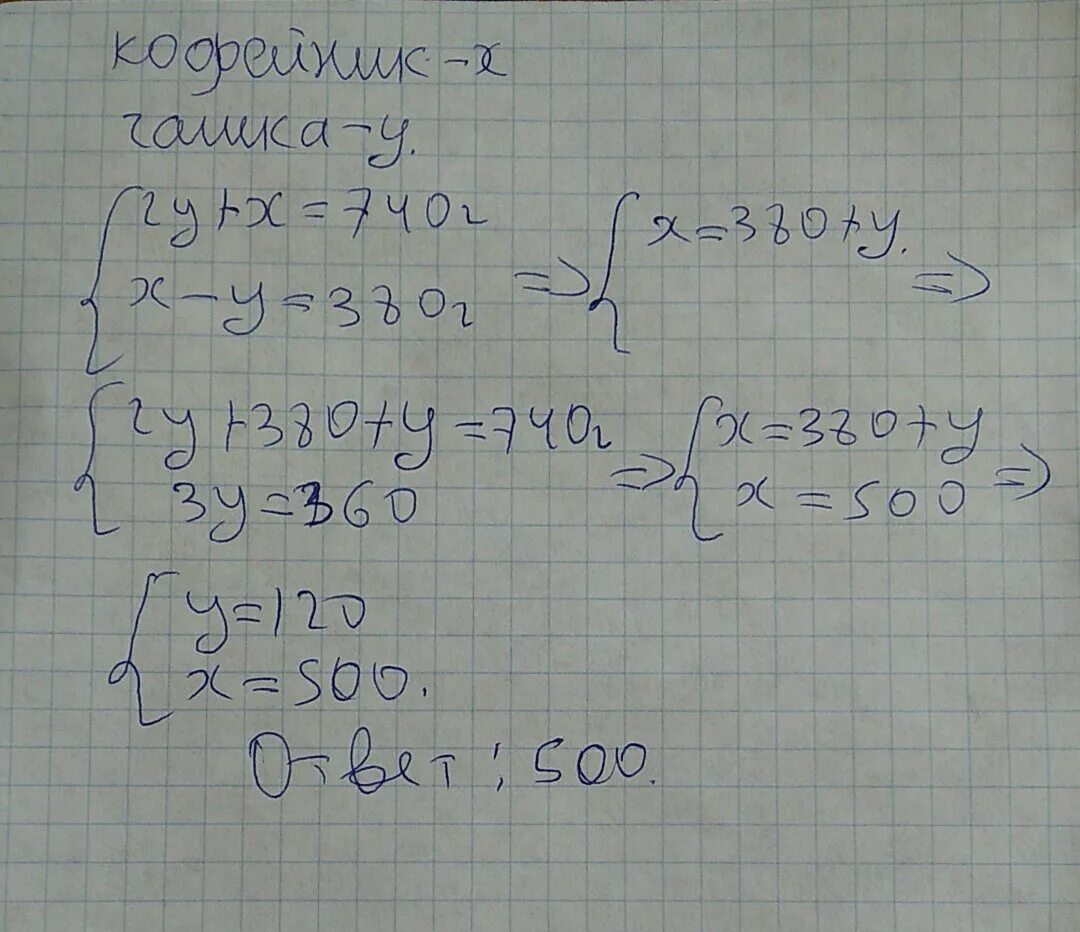 кофейник - x
чашка - y.
{ 2y + x = 740г
x - y = 380г => { x = 380 + y. =>
{ 2y + 380 + y = 740г
3y = 360 => { x = 380 + y
x = 500 =>
{ y = 120
x = 500.
Ответ: 500.